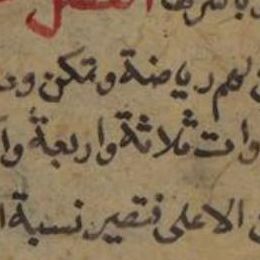 الفصل
لهم رياضة وتمكن
وات ثلاثة واربعة وا
الاعلى فتصير نسبة ا